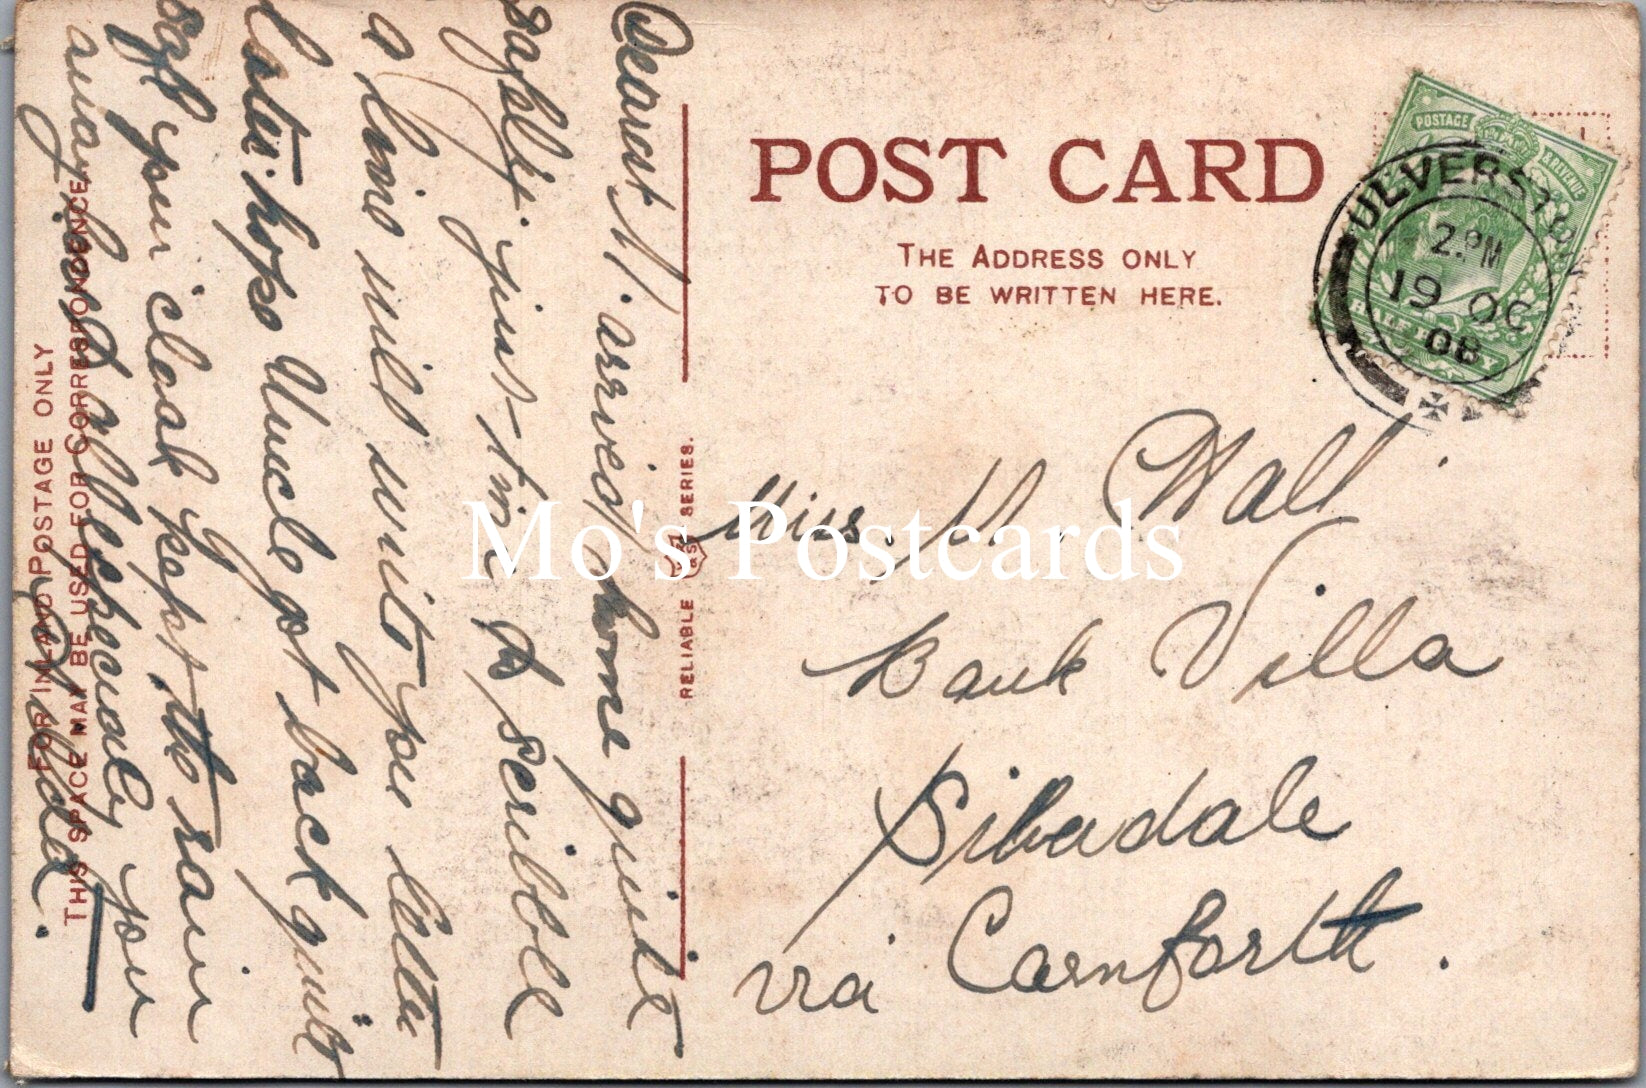 POST CARD
THE ADDRESS ONLY
TO BE WRITTEN HERE.
POSTAGE & REVENUE
HALF PENNY
ULVERSTON
2. PM
19 OC
08
Miss. M. Wall
Bank Villa
Silverdale
via Carnforth.
RELIABLE SERIES.
FOR INLAND POSTAGE ONLY
THIS SPACE MAY BE USED FOR CORRESPONDENCE
Dearest M. arrived home quite
safely. just time to scribble
a line will write you letter
later. hope Uncle got back quite
safe your cloak kept the rain
away. best all especially your
Mo's Postcards